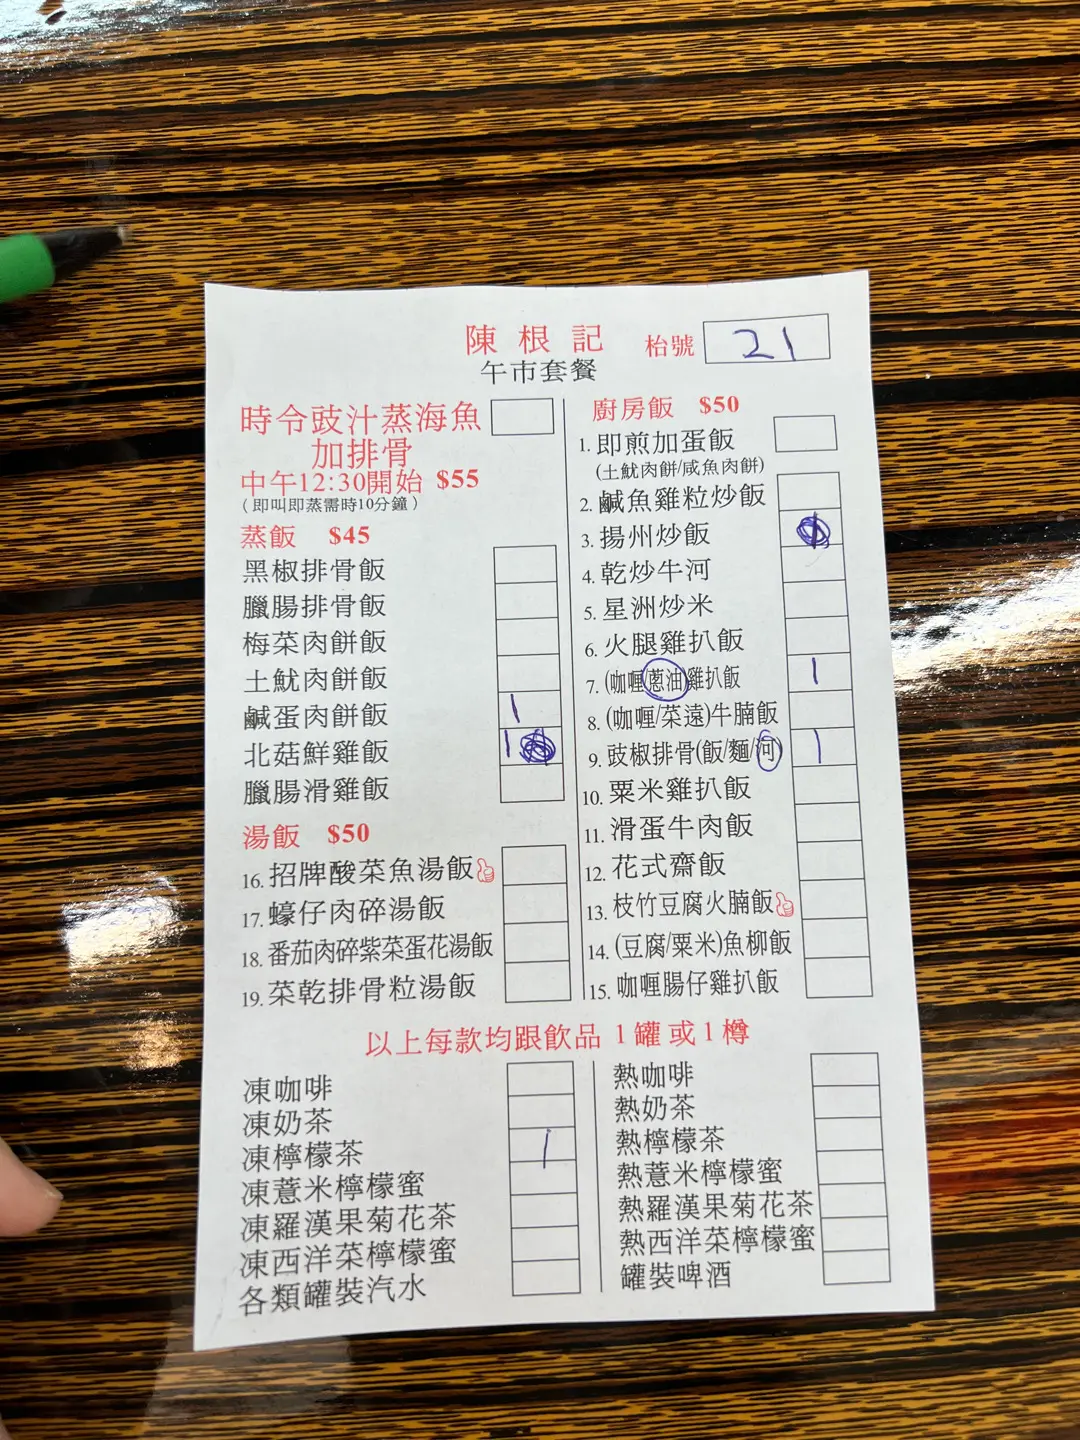 陳根記
枱號 21
午市套餐
時令豉汁蒸海魚
加排骨
中午12:30開始 $55
(即叫即蒸需時10分鐘)
蒸飯 $45
黑椒排骨飯
臘腸排骨飯
梅菜肉餅飯
土魷肉餅飯
鹹蛋肉餅飯 1
北菇鮮雞飯 1
臘腸滑雞飯
湯飯 $50
16. 招牌酸菜魚湯飯
17. 蠔仔肉碎湯飯
18. 番茄肉碎紫菜蛋花湯飯
19. 菜乾排骨粒湯飯
廚房飯 $50
1. 即煎加蛋飯
(土魷肉餅/咸魚肉餅)
2. 鹹魚雞粒炒飯
3. 揚州炒飯
4. 乾炒牛河
5. 星洲炒米
6. 火腿雞扒飯
7. (咖喱/蔥油)雞扒飯 1
8. (咖喱/菜遠)牛腩飯
9. 豉椒排骨(飯/麵/河) 1
10. 粟米雞扒飯
11. 滑蛋牛肉飯
12. 花式齋飯
13. 枝竹豆腐火腩飯
14. (豆腐/粟米)魚柳飯
15. 咖喱腸仔雞扒飯
以上每款均跟飲品 1 罐 或 1 樽
凍咖啡
凍奶茶
凍檸檬茶 1
凍薏米檸檬蜜
凍羅漢果菊花茶
凍西洋菜檸檬蜜
各類罐裝汽水
熱咖啡
熱奶茶
熱檸檬茶
熱薏米檸檬蜜
熱羅漢果菊花茶
熱西洋菜檸檬蜜
罐裝啤酒